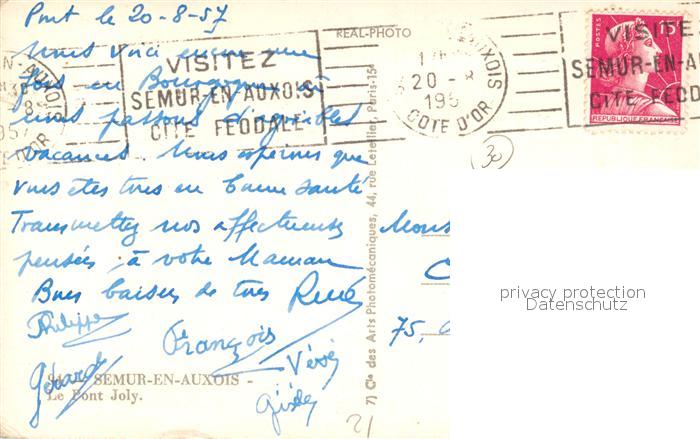 Pont le 20-8-57
Nous voici encore une
fois en Bourgogne où
nous passons d'agréables
vacances. Nous espérons que
vous êtes tous en bonne santé
Transmettez nos affectueuses
pensées à votre Maman
Bons baisers de tous René
Philippe
François
Gérard
Gisèle
SEMUR-EN-AUXOIS -
Le Pont Joly.
21
REAL-PHOTO
7) Cie des Arts Photomécaniques, 44, rue Letellier, Paris-15e
VISITEZ
SEMUR-EN-AUXOIS
CITÉ FÉODALE
20 - 8
195
COTE D'OR
VISITE
SEMUR-EN-A
CITÉ FÉODA
POSTES
15F
REPUBLIQUE FRANÇAISE
30
Mons
75,
privacy protection
Datenschutz